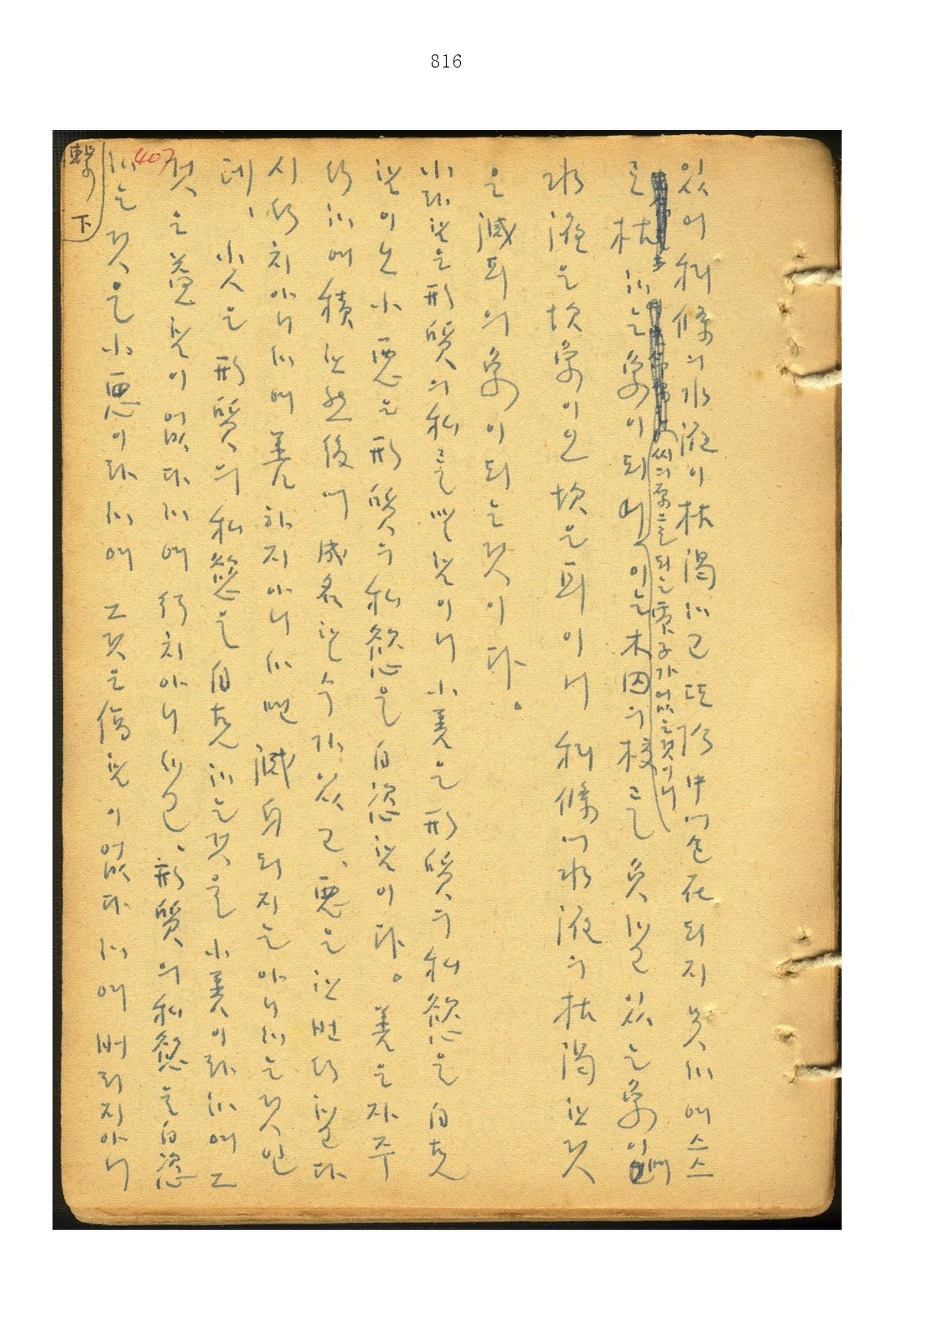 816
繫下
407
있어 糾條의 水液이 枯渴하고 또 陷中에 包在되지 못하매 스스
로 枯하는 象이 되며 이는 木囚의 校를 負할 있는 象이며
씨의 象을 되는 震子가 없는것이니
水液은 坎象이오 坎은 耳이니 糾條에 水液의 枯渴한것
은 滅耳의 象이 되는것이다。
小人은 形質의 私를 함이니 小善은 形質의 私慾을 自克
함이오 小惡은 形質의 私慾을 自恣함이다。善은 자주
行하매 積한然後에 成名할수가 있고、惡은 한번 行할다
시 行치아니하매 善하지아니하면 滅身되지는 아니하는것인
데、小人은 形質의 私慾을 自克하는것을 小善이라하매 그
것은 益함이 없다하매 行치아니하고、形質의 私慾을 自恣
하는것을 小惡이라하매 그것은 傷함이 없다하매 버리지아니